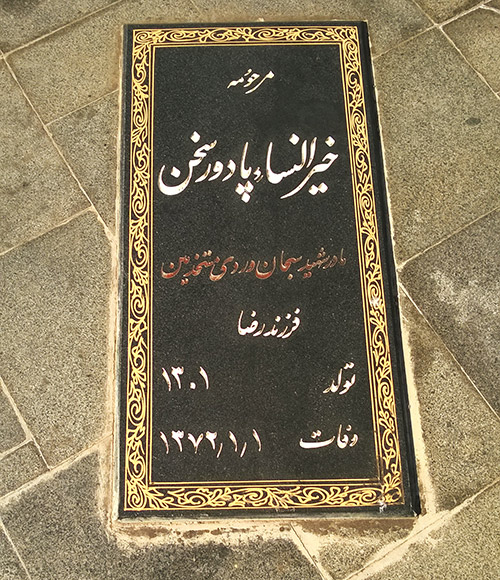 مرحومه
خیرالنساء پادور سخن
مادر شهید سبحان وردی مستخدمین
فرزند رضا
تولد ۱۳۰۱
وفات ۱۳۷۲/۱/۱